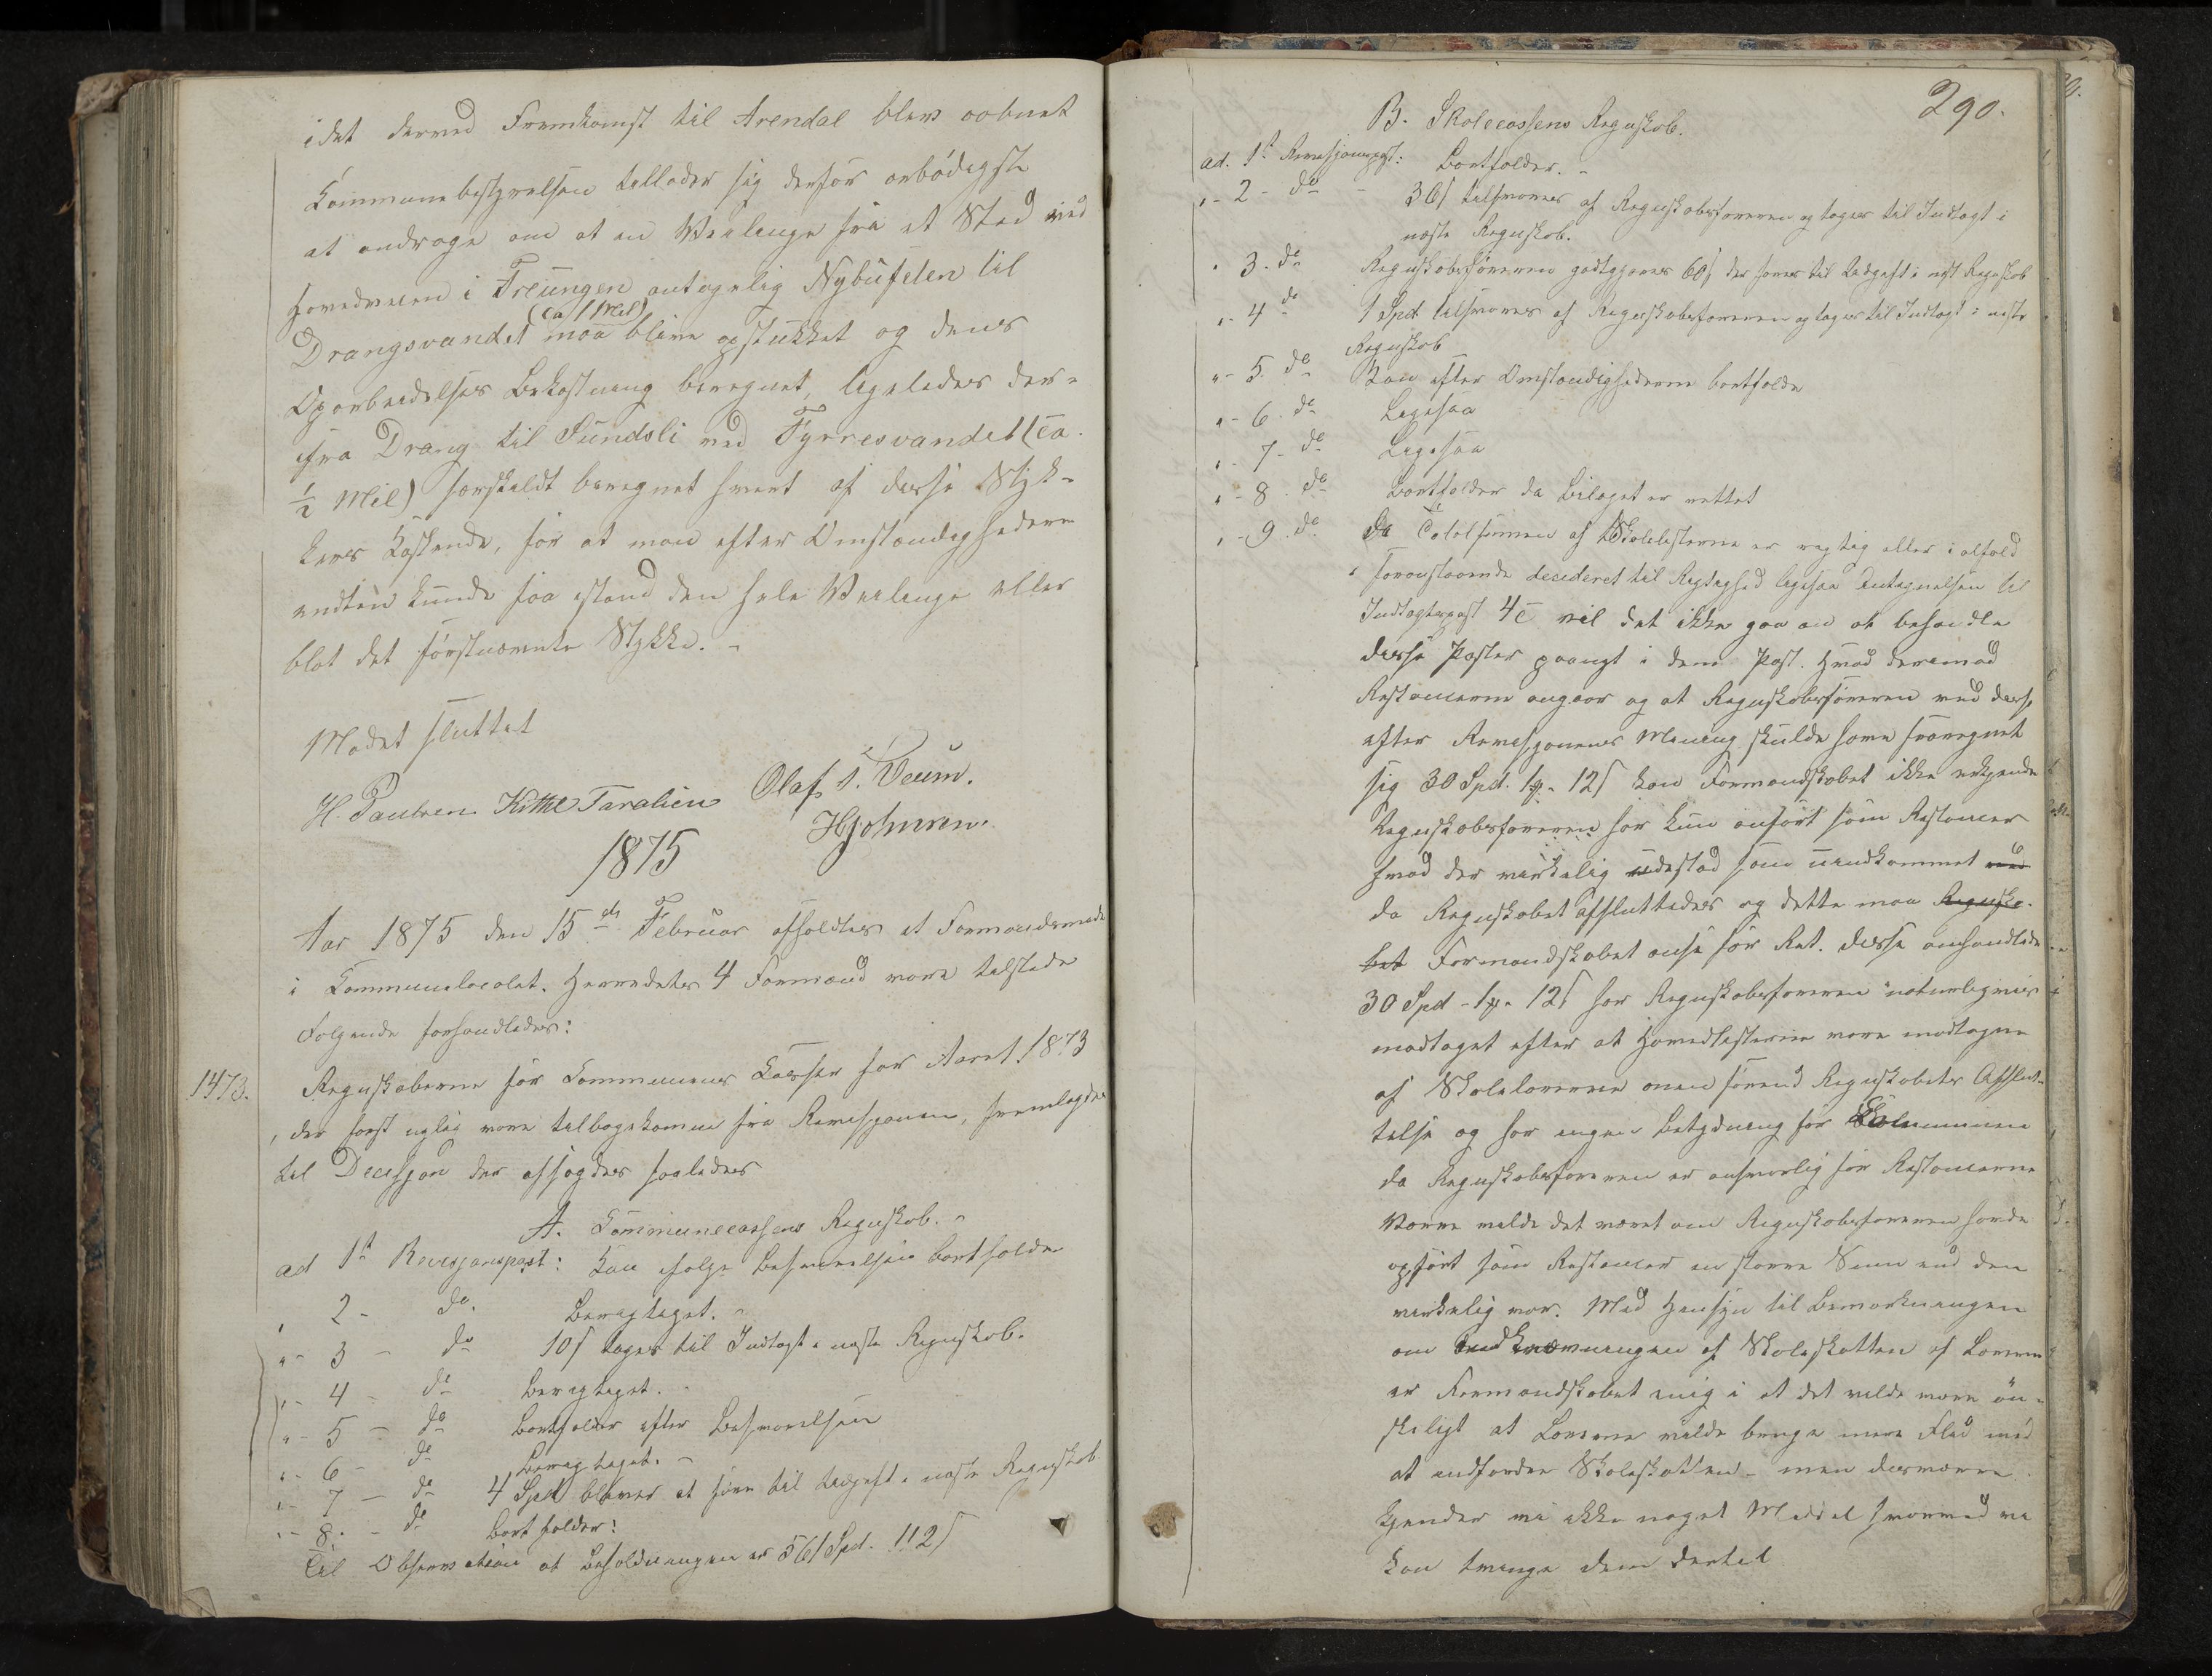 idet derved Fremkomst til Arendal blev aabnet
Kommunebestyrelsen tillader sig derfor ærbødigste
at andrage om at en Veilængde fra et Sted ved
Hovedveien i Treungen antagelig Nybufelen til
(ca 1 Mil)
Drangsvandet maa blive opstukket og dens
Oparbeidelses Bekostning beregnet, ligeledes der-
fra Drang til Sundsli ved Fyrresvandet (ca.
½ Mil) særskildt beregnet hvert af disse Styk-
kers Kostende, for at man efter Omstændighedern
endten kunde faa istand den hele Veilænge eller
blot det førstnævnte Stykke. -
Mødet sluttet
H. Paulsen Kittil Taralsen Olaf T. Veum.
HJohnsen.
1875
Aar 1875 den 15de Februar afholdtes et Formandsmøde
i Kommunelocalet. Herredets 4 Formænd vare tilstede
Følgende forhandledes:
1473. Regnskaberne for Kommunens Kasser for Aaret 1873
, der først nylig vare tilbagekomne fra Revisjonen, fremlagdes
til Decisjon der afsagdes saaledes
A. Kommunecassens Regnskab. -
ad 1st Revisjonspost: Kan ifølge Besvarelsen bortfalde
" 2 - do. Beragtaget. -
" - 3 - do 10 s tages til Indtægt i næste Regnskab.
" - 4 - do Beragtaget. -
" - 5 - do Bortfalder efter Besvarelsen
" - 6 - do Beragtaget. -
" - 7 - do 4 Spd bliver at føre til Udgift i næste Regnskab
" - 8. - do Bortfalder:
Til Observation at Beholdningen er 561 Spd. 112 s
290.
B. Skolecassens Regnskab.
ad. 1st Revisjonspost: Bortfalder. -
" - 2 - do - 36 s tilsvares af Regnskabsføreren og tages til Indtægt i
næste Regnskab.
" 3. do Regnskabsføreren godtgjøres 60 s der føres til Udgift i næst Regnskab
" - 4 do 1 Spd tilsvares af Regnskabsføreren og tages til Indtægt i næste
Regnskab
" - 5. do Kan efter Omstændighederne bortfalde
" - 6. do Ligesaa
" - 7 - do Ligesaa
" - 8. do Bortfalder da Bilaget er rettet
" - 9. do Da Totalsummen af Skolelisterne er rigtig eller i alfald
foranstaaende decideret til Rigtighed ligesaa Antagnelsen til
Indtægtspost 4c vil det ikke gaa an at behandle
disse Poster paanyt i denne Post. Hvad derimod
Restancerne angaar og at Regnskabsføreren ved disse
efter Revisjonens Mening skulde have fraregnet
sig 30 Spd. 1 - 12 s kan Formandskabet ikke erkjende
Regnskabsføreren har kun anført som Restancer
hvad der virkelig udestod som uindkommet ved
da Regnskabet afsluttedes og dette maa Regnska-
bet Formandskabet anse for Ret. Disse omhandlede
30 Spd - 1 - 12 s har Regnskabsføreren naturligviis
modtaget efter at Hovedlisterne vare modtagne
af Skolelærerne men førend Regnskabets Afslut-
telse og har ingen Betydning for Kommunen
da Regnskabsføreren er ansvarlig for Restancerne
Værre vilde det været om Regnskabsføreren havde
opført som Restancer en større Sum end den
virkelig var. Med Hensyn til Bemærkningen
om Indkrævningen af Skoleskatten af Lærerne
er Formandskabet enig i at det vilde være øn-
skeligt at Lærerne vilde bruge mere Flid med
at indfordre Skoleskatten - men desværre
kjender vi ikke noget Middel hvormed vi
kan tvinge dem dertil